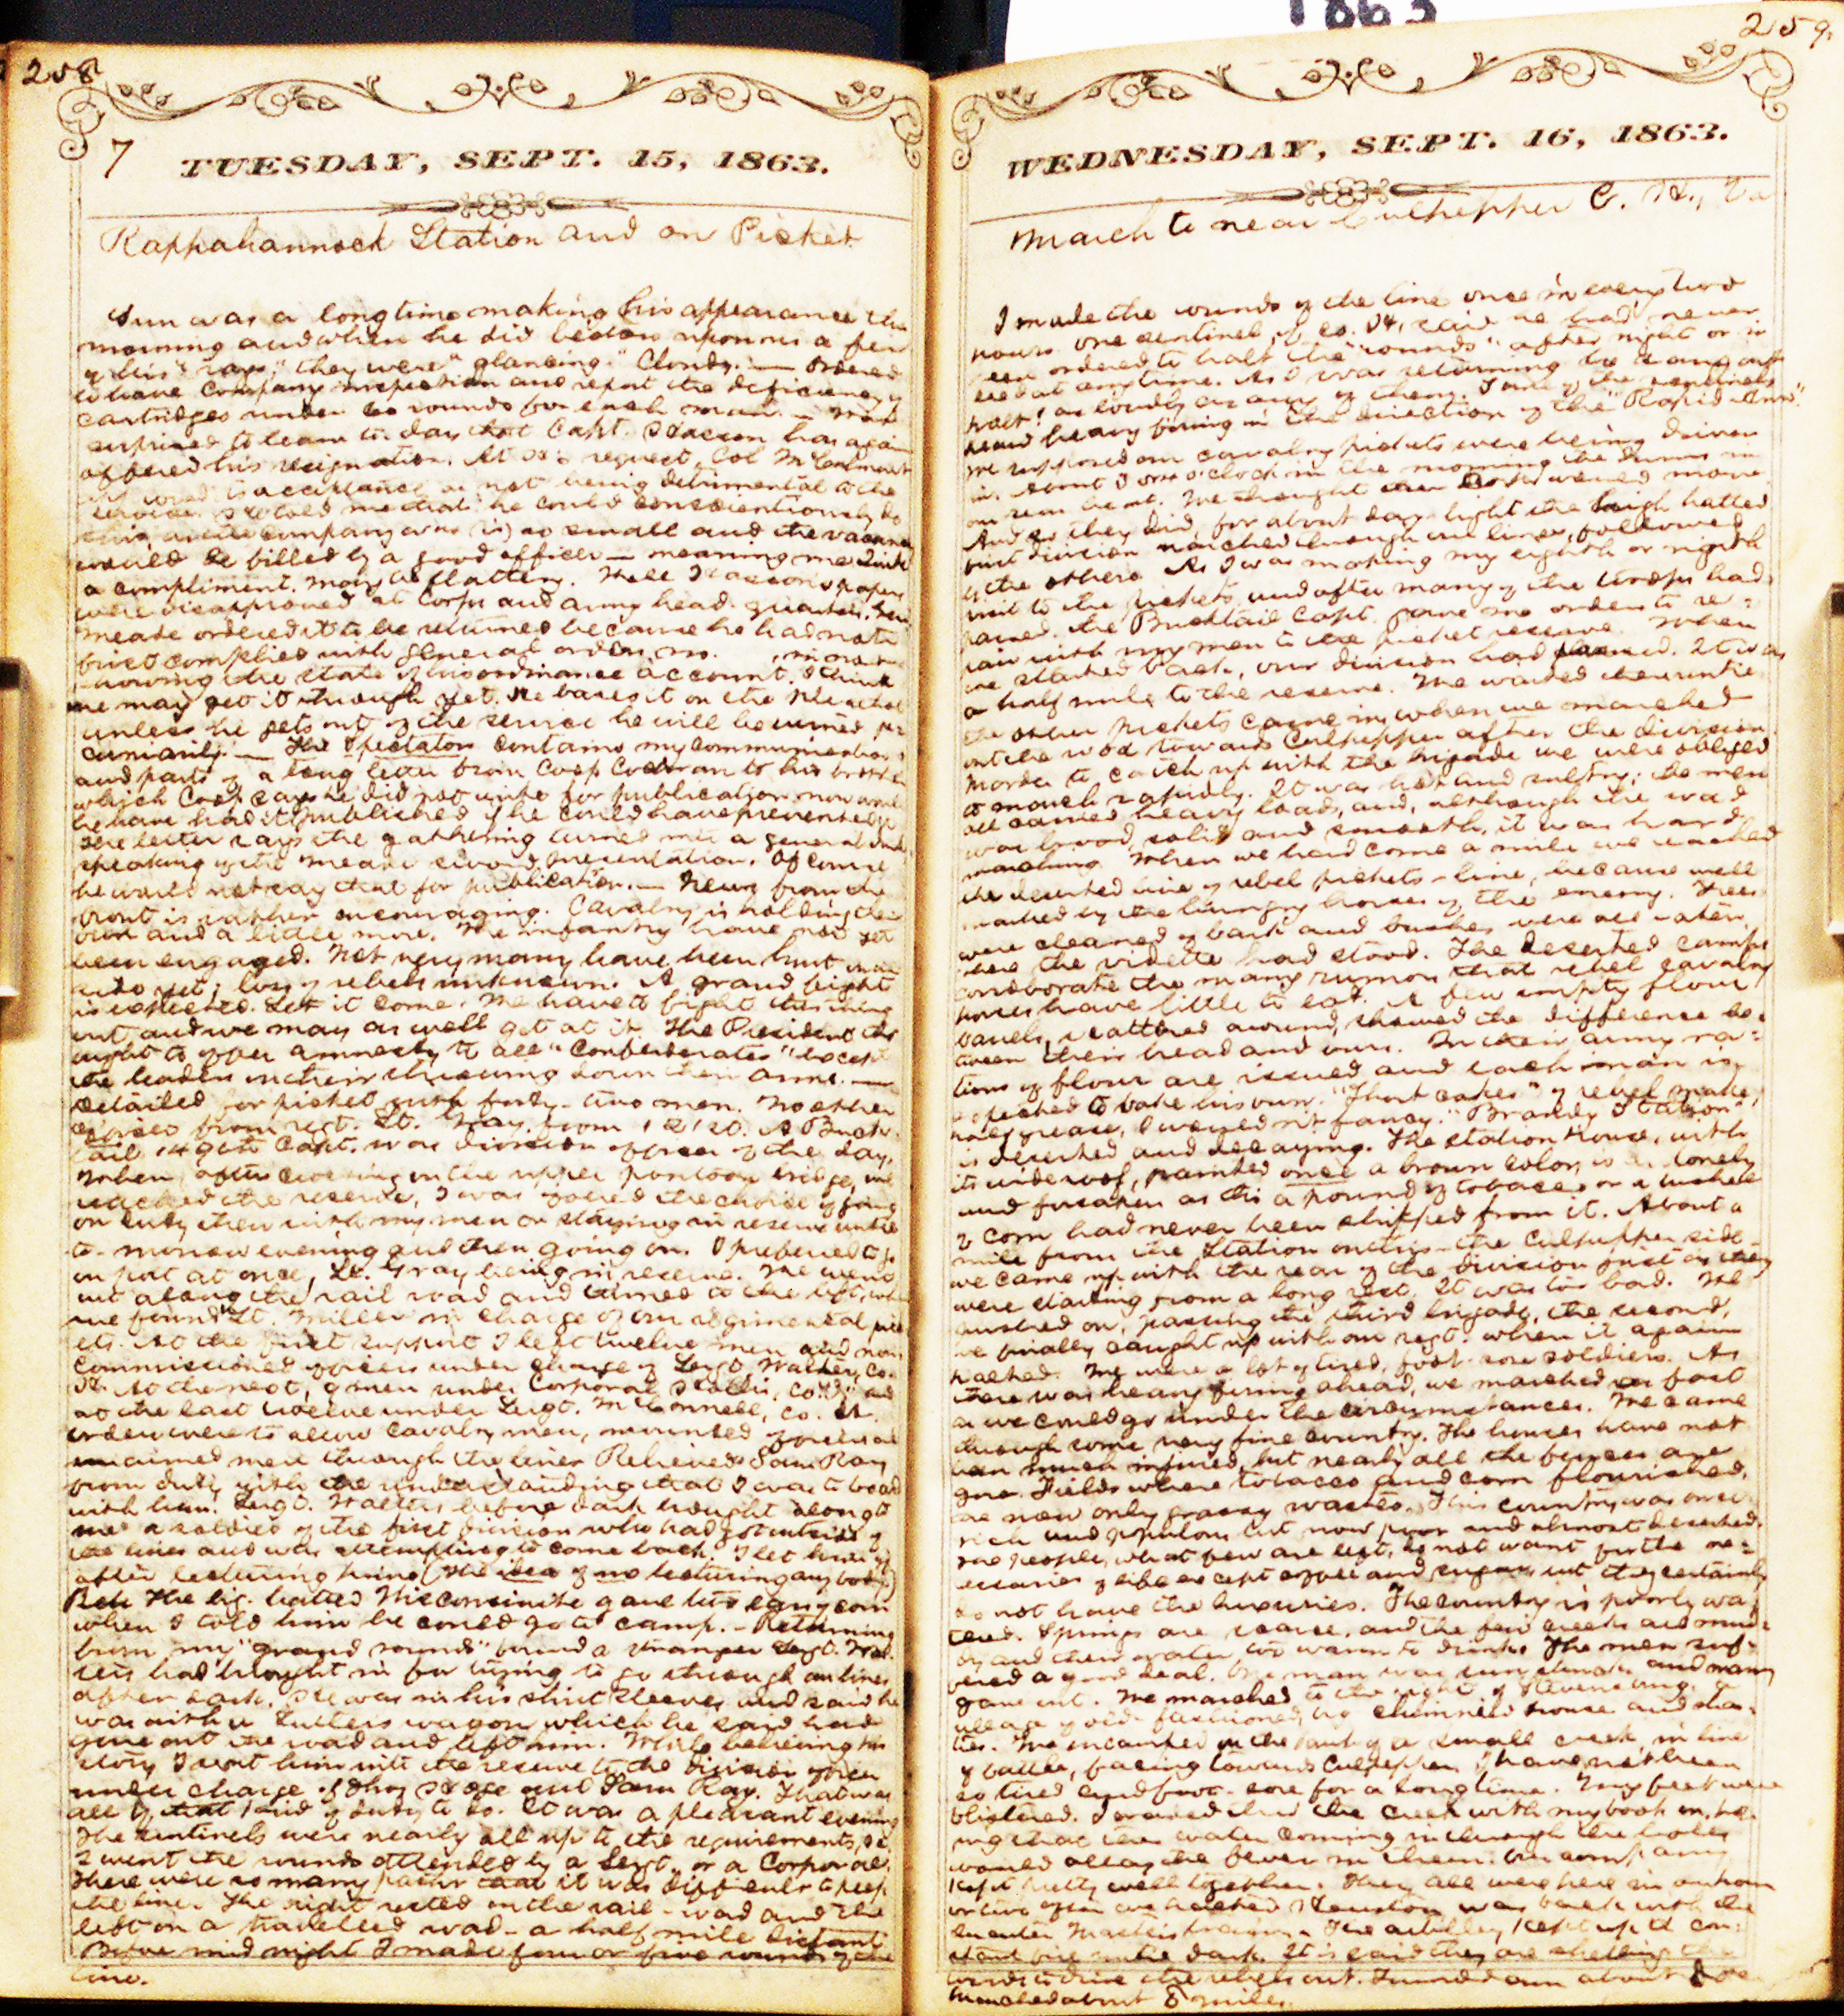 1863
258
7 TUESDAY, SEPT. 15, 1863.
Rappahannock Station and on Picket
Sun was a long time making his appearance this
morning and when he did bestow upon us a few
of his "rays," they were "glancing." Cloudy. — Ordered
to have Company inspection and report the deficiency of
cartridges under 60 rounds for each man. — Was
surprised to learn to day that Capt. has again
offered his resignation. At his request, Col McCalmont
acceptance as not being detrimental to the
service. He told me that he could conscientiously do
this, as the company was (is) so small and the vacancy
would be filled by a good officer — meaning me. Quite
a compliment. May be flattery. Well papers
were disapproved at Corps and army head-quarters. Gen
Meade ordered it to be returned because he had not
first complied with General orders, no.
showing the state of his ordinance account. I think
he may get it through yet. He bases it on the plea that
unless he gets out of the service he will be ruined pe-
cuniarily. — The Spectator contains my communication
and parts of a long letter from Coop Cochran to his brother
which Coop says he did not write for publication nor would
he have had it published if he could have prevented it.
The letter says the gathering turned into a general drunk
speaking of the Meade sword presentation. Of course
he would not say that for publication. — News from the
front is rather encouraging. Cavalry is holding their
own and a little more. The infantry have not yet
been engaged. Not very many have been hurt on our
side yet; loss of rebels unknown. A grand fight
is expected. Let it come. We have to fight this thing
out, and we may as well get at it. The President
ought to offer amnesty to all "Confederates" except
the leaders on their throwing down their arms. —
Detailed for picket with forty-two men. No other
officer from regt. Lt. Gray from 121 Co. A Buck-
tail 149th Capt. was division officer of the day.
When, after crossing on the upper pontoon bridge, we
reached the reserve, I was offered the choice of going
on duty then with my men or staying in reserve until
to-morrow evening and then going on. I preferred to go
on post at once, Lt. Gray being in reserve. We went
out along the rail road and turned to the left, when
we found Lt. Miller in charge of our regimental pick-
ets. At the first support I left twelve men and non
commissioned officers under charge of Sergt. Walters, Co.
At the next, 9 men under Corporal and
at the last twelve under Sergt. McConnell, Co.
Orders were to allow cavalry men, mounted officers and
unarmed men through the lines. Relieved Sam Ray
from duty with the understanding that I was to board
with him. Sergt. Walters before dark brought along to
me a soldier of the first division who had got outside of
the lines and was attempting to come back. I let him go
after lecturing him (the idea of me lecturing any body).
The big hatted Wisconsinite gave two ears of corn
when I told him he could go to camp. — Returning
from my "grand rounds" found a stranger Sergt. Wal-
ters had brought in for trying to go through our lines
after dark. He was in his shirt sleeves and said he
was with a Sutler's wagon which he said had
gone out the road and left him. While believing his
story I sent him into the reserve to the division officer
under charge of and Sam Ray. That was
all of that kind of duty to do. It was a pleasant evening
The sentinels were nearly all up to the requirements, as
I went the rounds attended by a Sergt. or a Corporal.
There were so many paths that it was difficult to keep
the line. The right rested on the rail-road and the
left on a travelled road — a half mile distant.
Before mid night I made four or five rounds of the
line.
259.
WEDNESDAY, SEPT. 16, 1863.
March to near Culpepper C. H., Va
I made the rounds of the line once in every two
hours. One sentinel, of Co. said he had never
been ordered to halt the "rounds" after night or in
fact at any time. As I was returning he sang out
halt! as loudly as any of them. Some of the sentinels
heard heavy firing in the direction of the "Rapid Ann".
We supposed our cavalry pickets were being driven
in. About 3 o'clock in the morning the drums in
our rear beat. We thought then would move.
And so they did, for about day light the high hatted
first division marched through our lines, followed
by the others. As I was making my eighth or ninth
visit to the pickets and after many of the troops had
passed, the Bucktail Capt. gave me orders to re-
tire with my men to the picket reserve. When
we started back, our division had passed. It was
a half mile to the reserve. We waited there until
the other pickets came in, when we marched
out the road towards Culpepper after the division.
In order to catch up with the brigade we were obliged
to march rapidly. It was hot and sultry; the men
all carried heavy loads, and, although the road
was broad, solid and smooth, it was hard
marching. When we had come a mile we reached
the deserted line of rebel pickets — line, because well
marked by the hungry horses of the enemy. Trees
were cleaned of bark and bushes were all eaten
where the vidette had stood. The deserted camps
corroborate the many rumors that rebel cavalry
horses have little to eat. A few empty flour
barrels, scattered around, showed the difference be-
tween their bread and ours. In their army ra-
tions of flour are issued and each man is
expected to bake his own. "Short cakes" of rebel make,
half grease, I would n't fancy. "Brandy Station"
is deserted and decaying. The station House, with
its wide roof, painted once a brown color, is as lonely
and forsaken as tho a pound of tobacco or a bushel
of corn had never been shipped from it. About a
mile from the Station on this — the Culpepper side —
we came up with the rear of the division just as they
were starting from a long rest. It was too bad. We
pushed on, passing the third brigade, the second,
we finally caught up with our regt. when it again
halted. We were a lot of tired, foot-sore soldiers. As
there was heavy firing ahead, we marched as fast
as we could go under the circumstances. We came
through some very fine country. The houses have not
been much injured, but nearly all the fences are
gone. Fields where tobacco and corn flourished,
are now only grassy wastes. This country was once
rich and populous but now poor and almost deserted.
The people, what few are left, do not want for the ne-
cessaries of life except coffee and sugar, but they certainly
do not have the luxuries. The country is poorly wa-
tered. Springs are scarce, and the few creeks are mud-
dy and their water too warm to drink. The men suf-
fered a good deal. One man was sun struck and many
gave out. We marched to the right of Stevensburg, a
village of old-fashioned, big chimnied house and shan-
ties. We encamped on the bank of a small creek, in line
of battle, facing towards Culpepper. I have not been
so tired and foot-sore for a long time. My feet were
blistered. I waded thro' the creek with my boots on, ho-
ping that the water coming in through the holes
would allay the fever in them. Our company
kept pretty well together. They all were here in an hour
or two after we halted. Houston was back with the
Quarter Master's train. The artillery kept up a con-
stant fire until dark. It is said they are shelling the
woods to drive the rebels out. Turned in about 8
Marched about 8 miles.